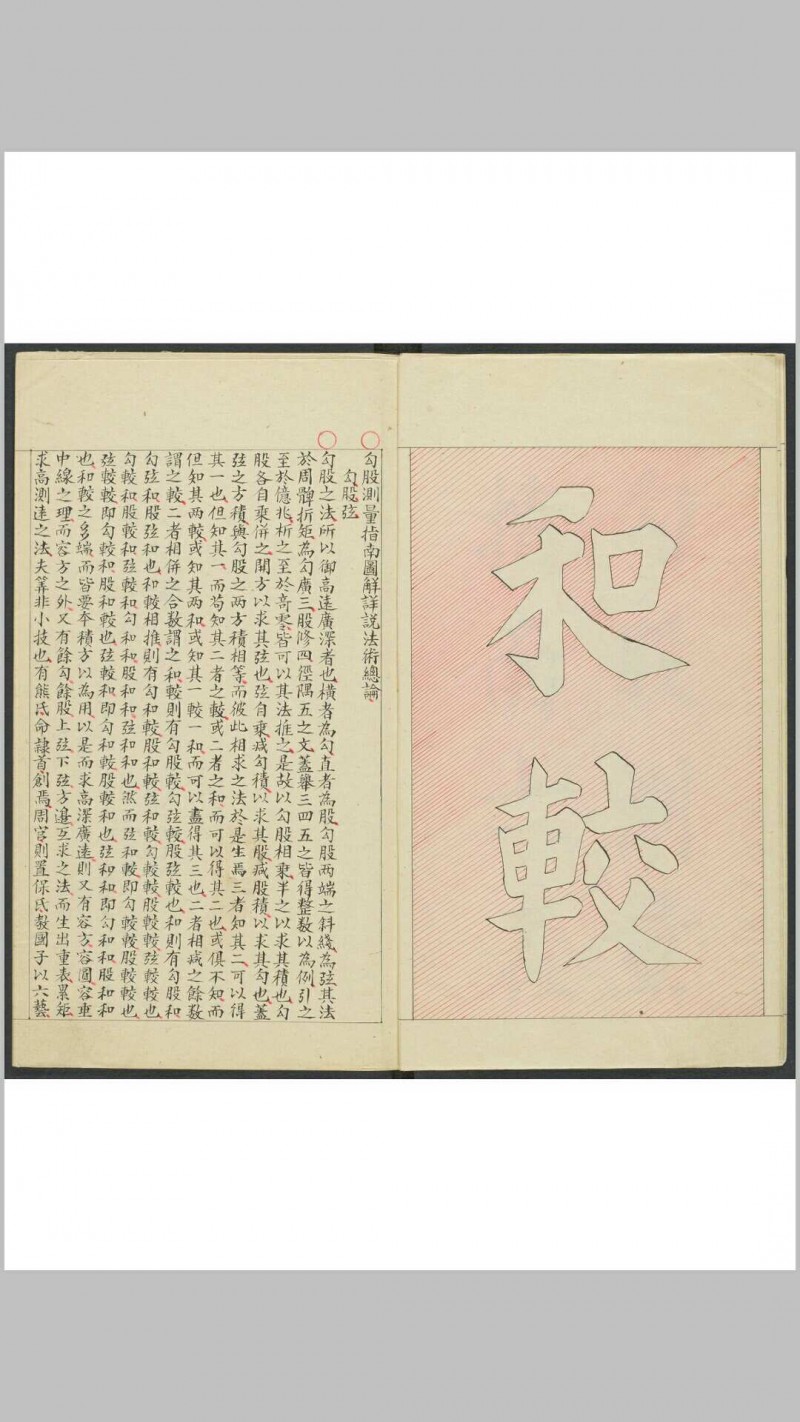 和較
勾股測量指南圖解詳説法術總論
勾股弦
勾股之法所以御高遠廣深者也橫者為勾直者為股勾股兩端之斜綫為弦其法
於周髀折矩為勾廣三股修四徑隅五之文蓋舉三四五之皆得整數以為例引之
至於億兆析之至於奇零皆可以其法推之是故以勾股相乘半之以求其積也勾
股各自乘併之開方以求其弦也弦自乘减勾積以求其股减股積以求其勾也蓋
弦之方積與勾股之两方積相等而彼此相求之法於是生焉三者知其二可以得
其一也但知其一而苟知其二者之較或二者之和而可以得其二也或俱不知而
但知其两較或知其两和或知其一較一和而可以盡得其三也二者相减之餘數
謂之較二者相併之合數謂之和較則有勾股較勾弦較股弦較也和則有勾股和
勾弦和股弦和也和較相推則有勾和較股和較弦和較勾較較股較較弦較較也
勾較和股較和弦較和勾和和股和和弦和和也然而弦和較即勾較較股較較也
弦較較即勾較和股和較也弦較和即勾和較股較和也弦和和即勾和和股和和
也和較之多端而皆要夲積方以為用以是而求高深廣遠則又有容方容圓容垂
中線之理而容方之外又有餘勾餘股上弦下弦方邉互求之法而生出重表累矩
求高測遠之法夫筭非小技也有熊氏命隷首創焉周官則置保氏教國子以六藝